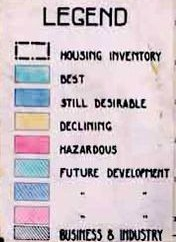 LEGEND
HOUSING INVENTORY
BEST
STILL DESIRABLE
DECLINING
HAZARDOUS
FUTURE DEVELOPMENT
" "
" "
BUSINESS & INDUSTRY